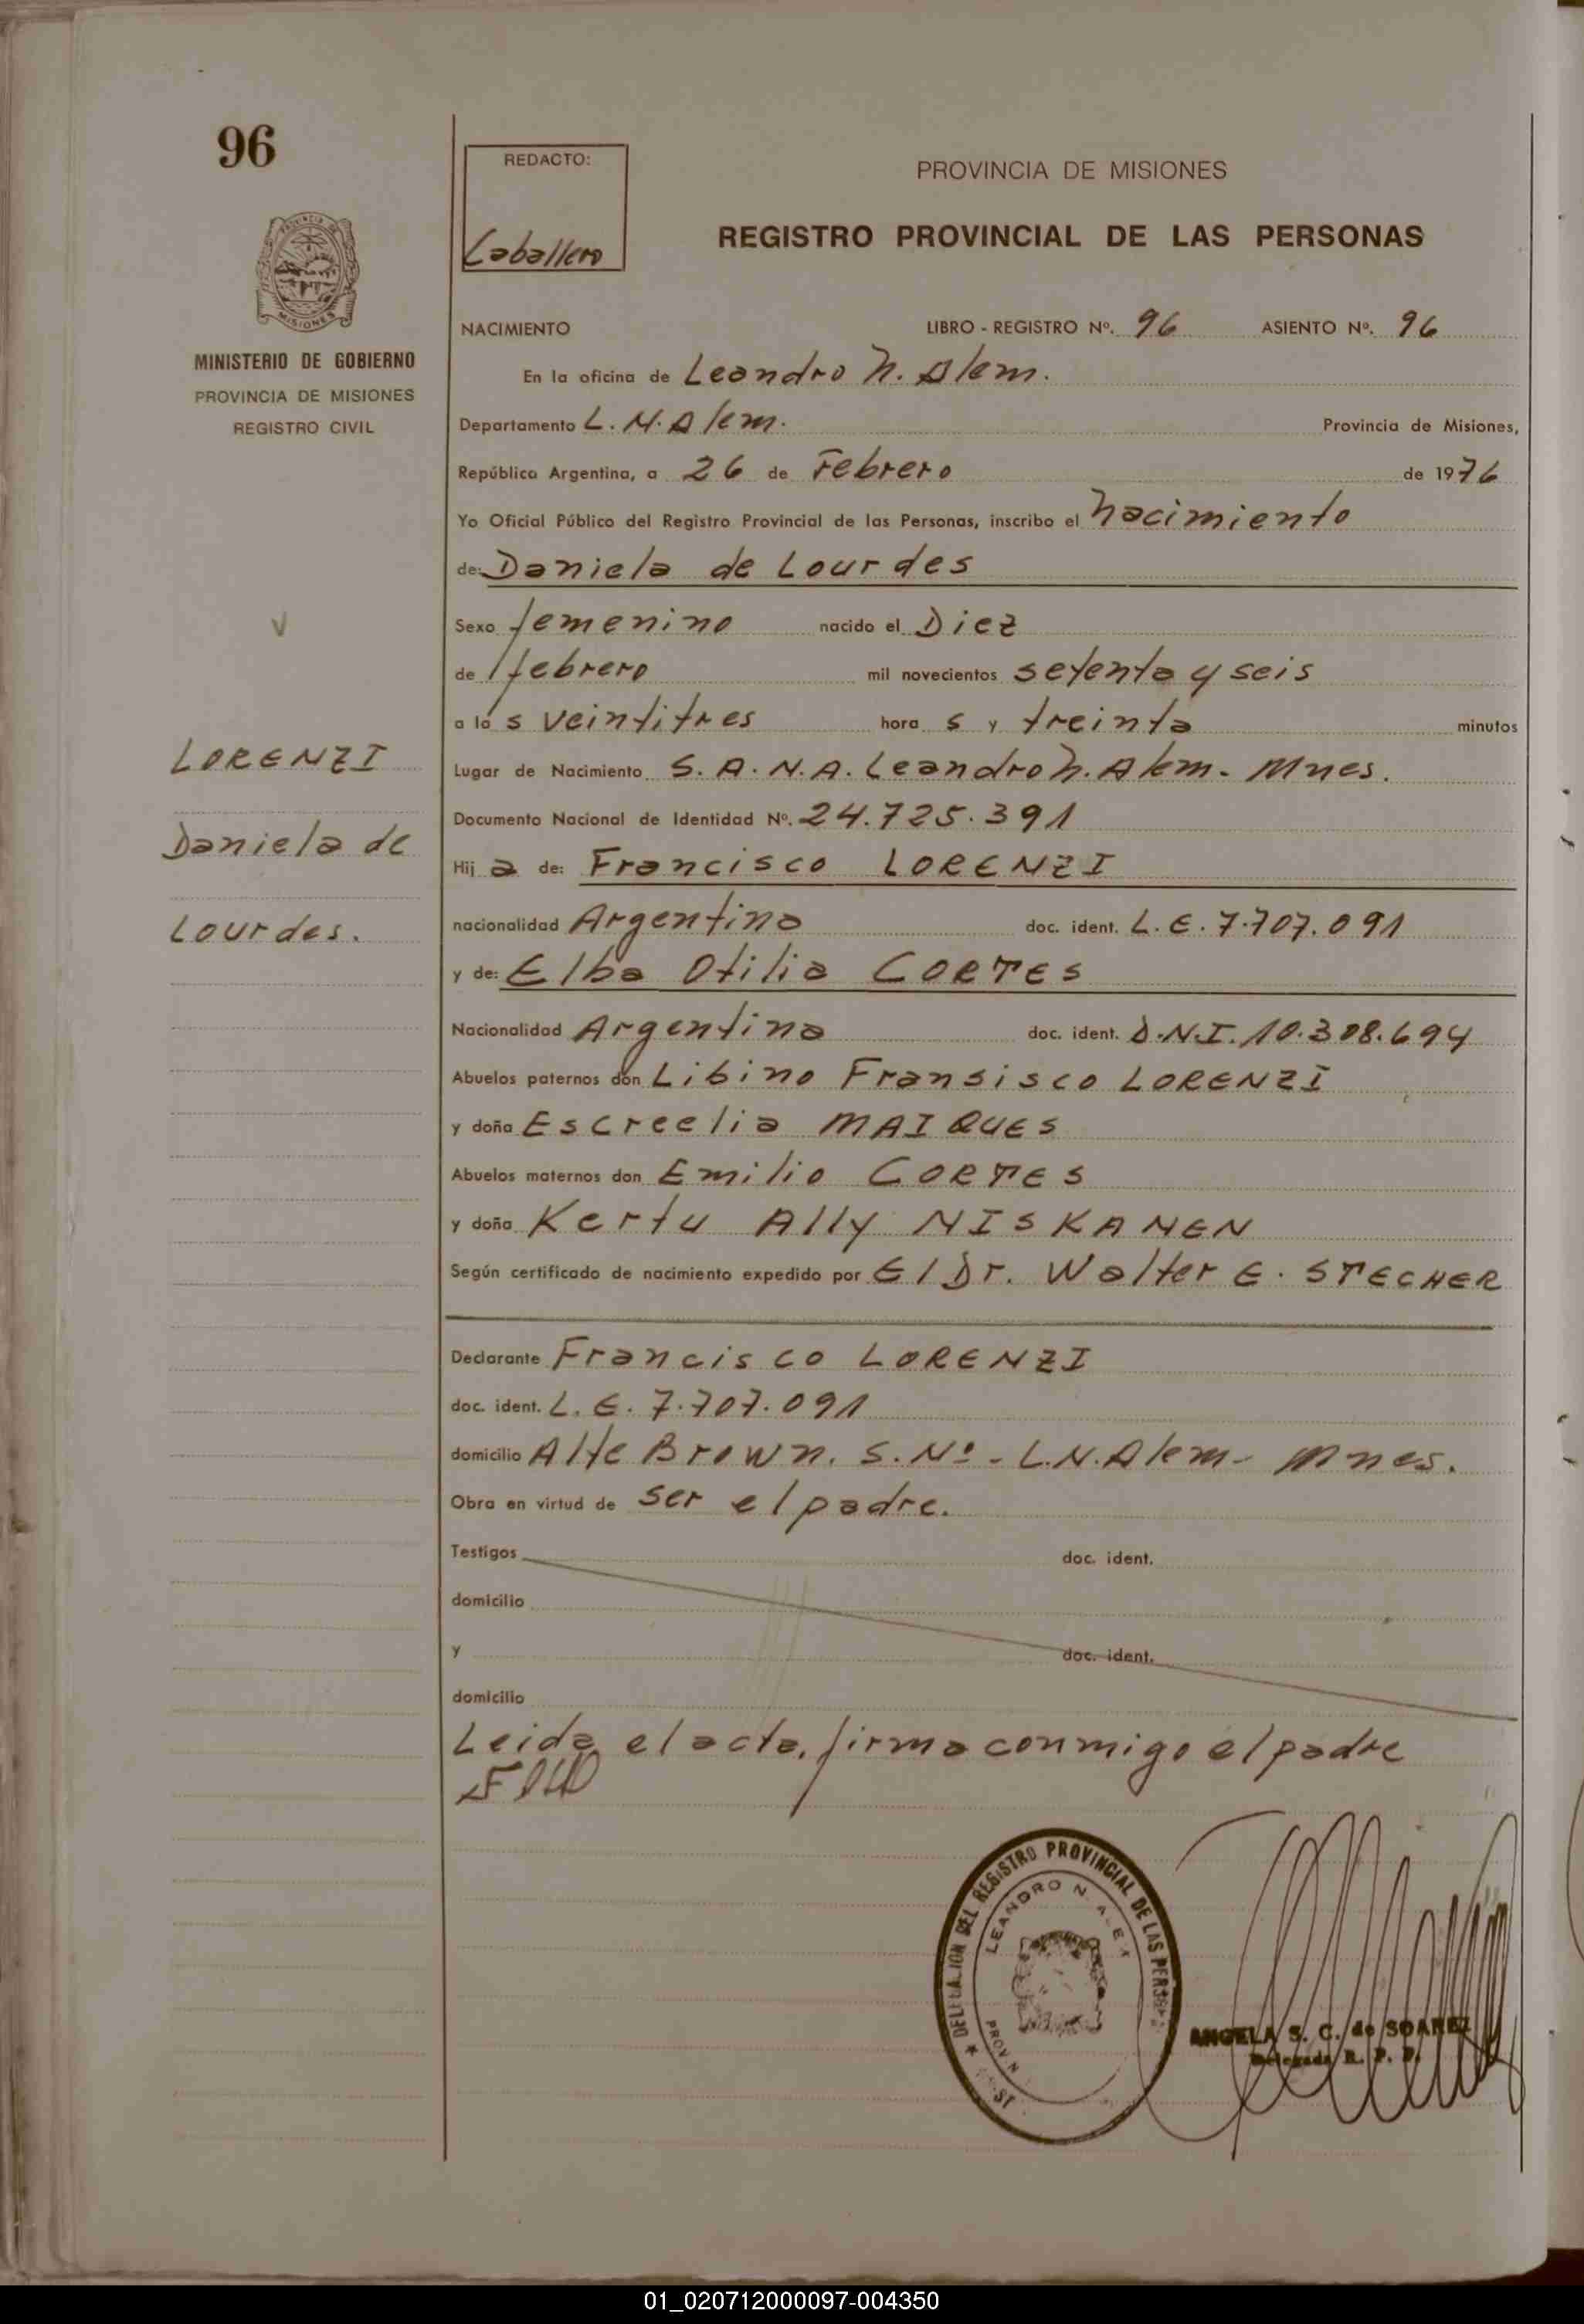 96
MINISTERIO DE GOBIERNO
PROVINCIA DE MISIONES
REGISTRO CIVIL
LORENZI
Daniela de
Lourdes.
REDACTO:
Caballero
PROVINCIA DE MISIONES
REGISTRO PROVINCIAL DE LAS PERSONAS
NACIMIENTO LIBRO - REGISTRO Nº. 96 ASIENTO Nº. 96
En la oficina de Leandro N. Alem.
Departamento L. N. Alem. Provincia de Misiones,
República Argentina, a 26 de Febrero de 1976
Yo Oficial Público del Registro Provincial de las Personas, inscribo el nacimiento
de: Daniela de Lourdes
Sexo femenino nacido el Diez
de febrero mil novecientos setenta y seis
a las veintitres horas y treinta minutos
Lugar de Nacimiento S. A. N. A. Leandro N. Alem - Mnes.
Documento Nacional de Identidad Nº. 24.725.391
Hija de: Francisco LORENZI
nacionalidad Argentina doc. ident. L. E. 7.707.091
y de: Elba Otilia CORTES
Nacionalidad Argentina doc. ident. D.N.I. 10.308.694
Abuelos paternos don Libino Fransisco LORENZI
y doña Escreelia MAIQUES
Abuelos maternos don Emilio CORTES
y doña Kertu Ally NISKANEN
Según certificado de nacimiento expedido por El Dr. Walter E. STECHER
Declarante Francisco LORENZI
doc. ident. L. E. 7.707.091
domicilio Alte Brown. S. Nº - L.N.Alem - Mnes.
Obra en virtud de ser el padre.
Testigos doc. ident.
domicilio
y doc. ident.
domicilio
Leida el acta, firma conmigo el padre
DELEGACION DEL REGISTRO PROVINCIAL DE LAS PERSONAS
LEANDRO N. ALEM
ANGELA S. C. de SOAREZ
Delegada R. P. P.
01_020712000097-004350